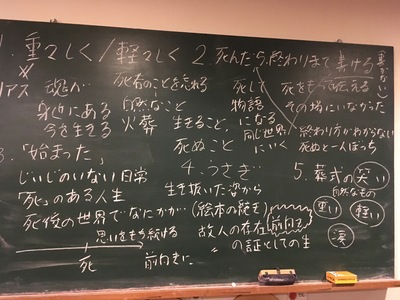 1. 重々しく/軽々しく 2. 死んだら終わりまで書ける
(書かない)
リアス 魂が 死者のことを忘れる 死して 死をもって伝える
身近にある 自然なこと 物語 その場にいなかった
今を生きる 火葬 生きること、 になる
死ぬこと 同じ世界にいく 終わり方がわからない
死ぬと一人ぼっち
3.「始まった」
じいじのいない日常 4. うさぎ 5. 葬式の笑い
「死」のある人生 生き抜いた姿から 自然なもの
死後の世界でなにかが (絵本の続き) 前向きで 重い 軽い
思いをもち続ける 故人の存在 涙
死 前向きに 〃 の証としての生